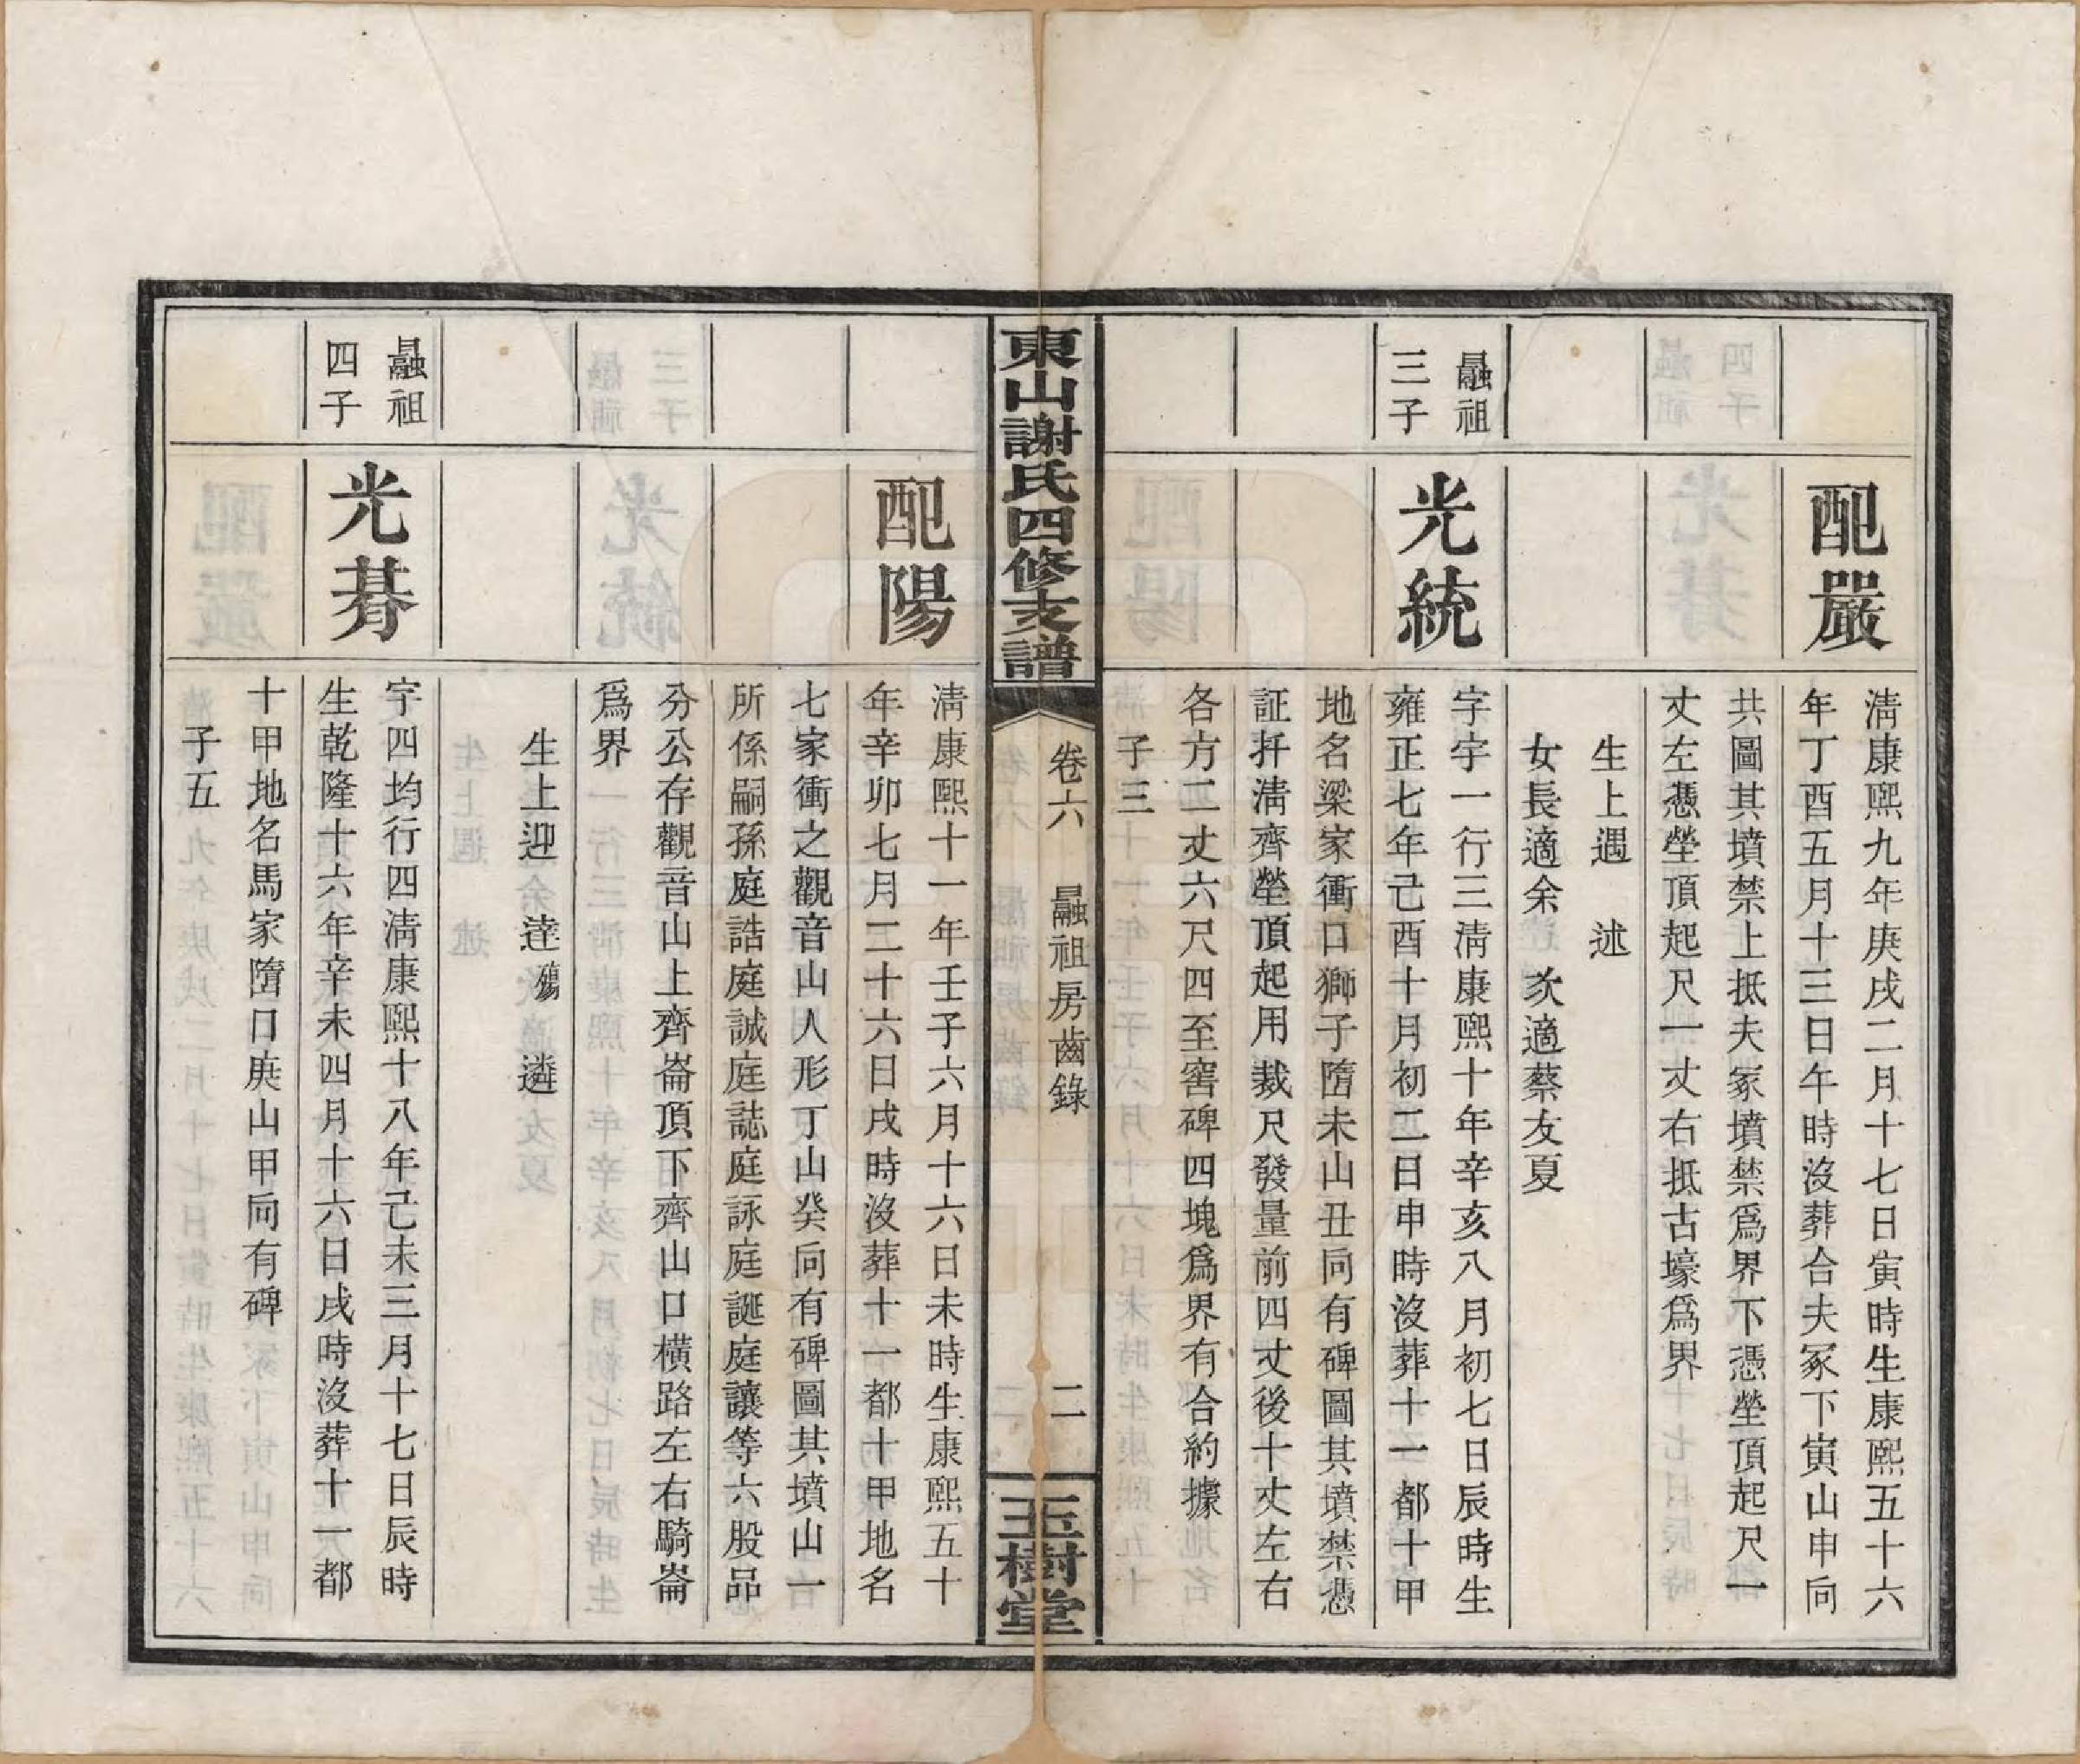 配嚴
清康熙九年庚戌二月十七日寅時生康熙五十六
年丁酉五月十三日午時沒葬合夫冢下寅山申向
共圖其墳禁上抵夫冢墳禁爲界下憑塋頂起尺一
丈左憑塋頂起尺一丈右抵古壕爲界
生上遇　述
女長適余　次適蔡友夏
朂祖
三子
光統
字宇一行三清康熙十年辛亥八月初七日辰時生
雍正七年己酉十月初二日申時沒葬十一都十甲
地名梁家衝口獅子隋未山丑向有碑圖其墳禁憑
証扦清齊塋頂起用裁尺發量前四丈後十丈左右
各方二丈六尺四至窖碑四塊爲界有合約據
子三
東山謝氏四修支譜
卷六　朂祖房齒錄
二
玉樹堂
配陽
清康熙十一年壬子六月十六日未時生康熙五十
年辛卯七月二十六日戌時沒葬十一都十甲地名
七家衝之觀音山人形丁山癸向有碑圖其墳山一
所係嗣孫庭誥庭誠庭誌庭詠庭誕庭讓等六股品
分公存觀音山上齊崙頂下齊山口橫路左右騎崙
爲界
生上迎　逹殤　遴
朂祖
四子
光朞
字四均行四清康熙十八年己未三月十七日辰時
生乾隆十六年辛未四月十六日戌時沒葬十一都
十甲地名馬家隋口庚山甲向有碑
子五